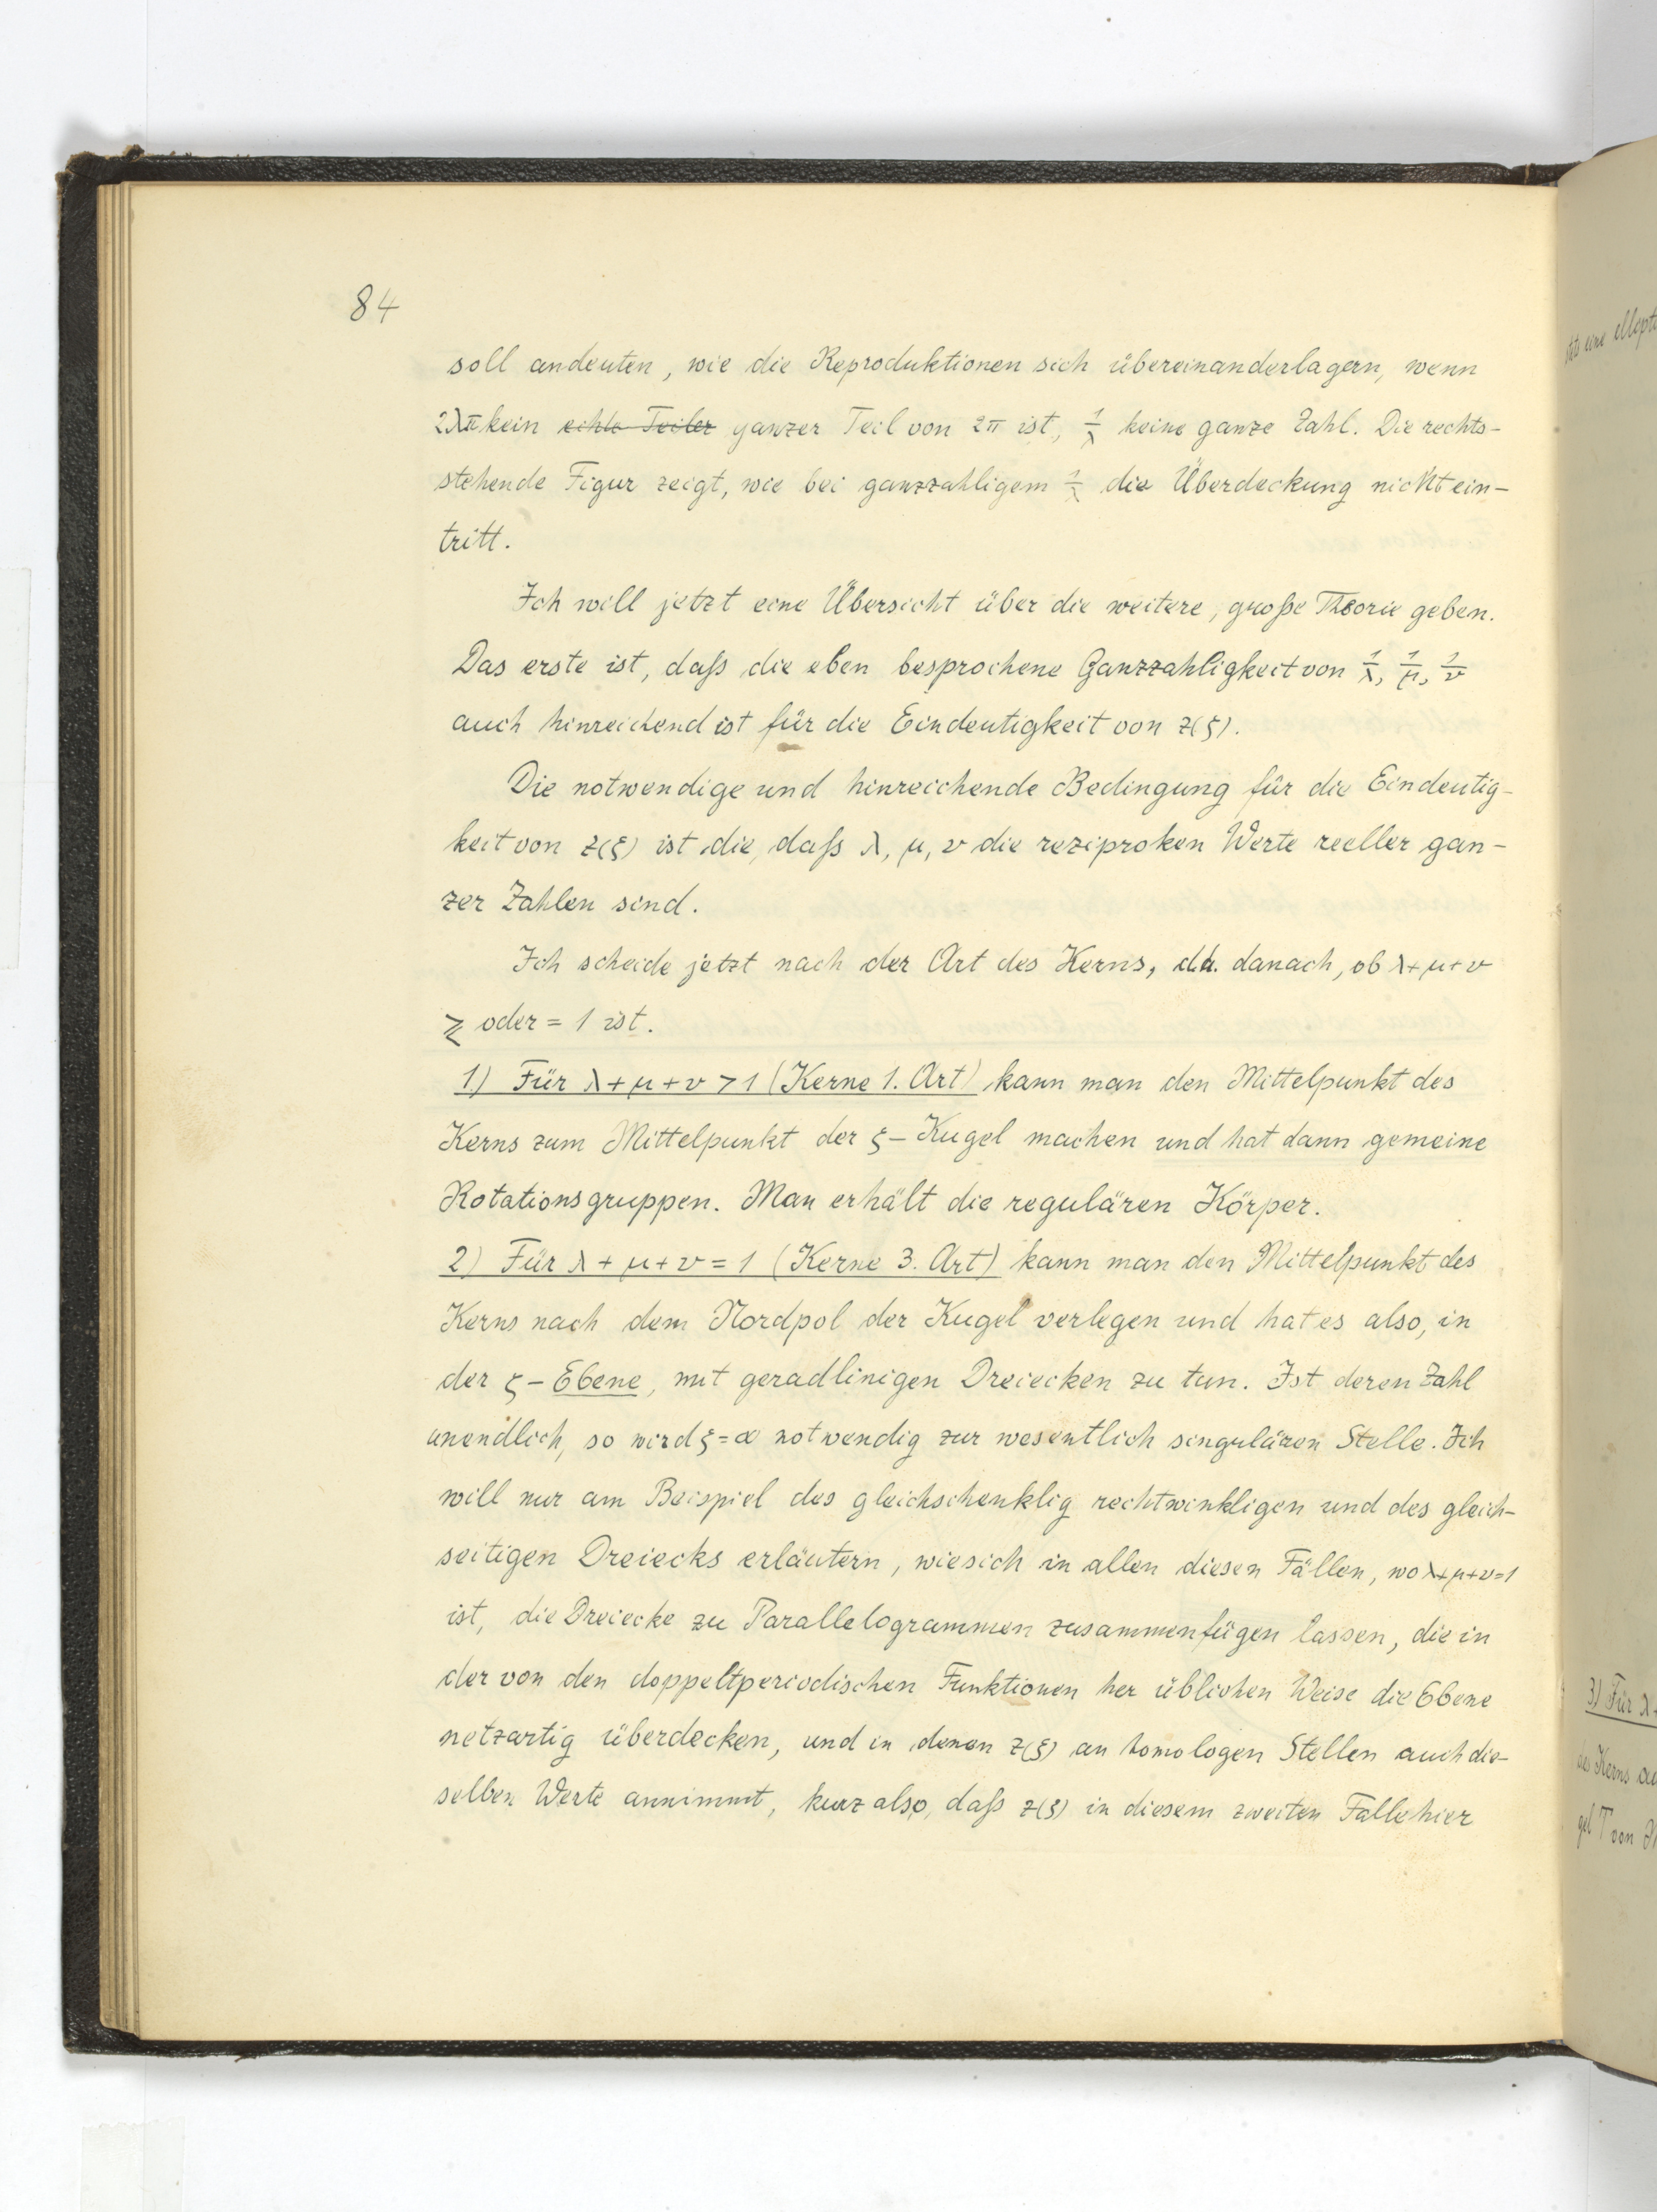 84
soll andeuten, wie die Reproduktionen sich übereinanderlagern, wenn
2λπ kein echte Teiler ganzer Teil von 2π ist, 1/λ keine ganze Zahl. Die rechts-
stehende Figur zeigt, wie bei ganzzahligem 1/λ die Überdeckung nicht ein-
tritt.
Ich will jetzt eine Übersicht über die weitere, große Theorie geben.
Das erste ist, daß die eben besprochene Ganzzahligkeit von 1/λ, 1/μ, 1/ν
auch hinreichend ist für die Eindeutigkeit von z(ζ).
Die notwendige und hinreichende Bedingung für die Eindeutig-
keit von z(ζ) ist die, daß λ, μ, ν die reziproken Werte reeller gan-
zer Zahlen sind.
Ich scheide jetzt nach der Art des Kerns, d.h. danach, ob λ+μ+ν
≷ oder = 1 ist.
1.) Für λ+μ+ν > 1 (Kerne 1. Art) kann man den Mittelpunkt des
Kerns zum Mittelpunkt der ζ-Kugel machen und hat dann gemeine
Rotationsgruppen. Man erhält die regulären Körper.
2) Für λ+μ+ν = 1 (Kerne 3. Art) kann man den Mittelpunkt des
Kerns nach dem Nordpol der Kugel verlegen und hat es also, in
der ζ-Ebene, mit geradlinigen Dreiecken zu tun. Ist deren Zahl
unendlich, so wird ζ=∞ notwendig zur wesentlich singulären Stelle. Ich
will nur am Beispiel des gleichschenklig rechtwinkligen und des gleich-
seitigen Dreiecks erläutern, wie sich in allen diesen Fällen, wo λ+μ+ν=1
ist, die Dreiecke zu Parallelogrammen zusammenfügen lassen, die in
der von den doppeltperiodischen Funktionen her üblichen Weise die Ebene
netzartig überdecken, und in denen z(ζ) an homologen Stellen auch die-
selben Werte annimmt, kurz also, daß z(ζ) in diesem zweiten Falle hier
stets eine
3) Für λ+
des Kerns
gel T von